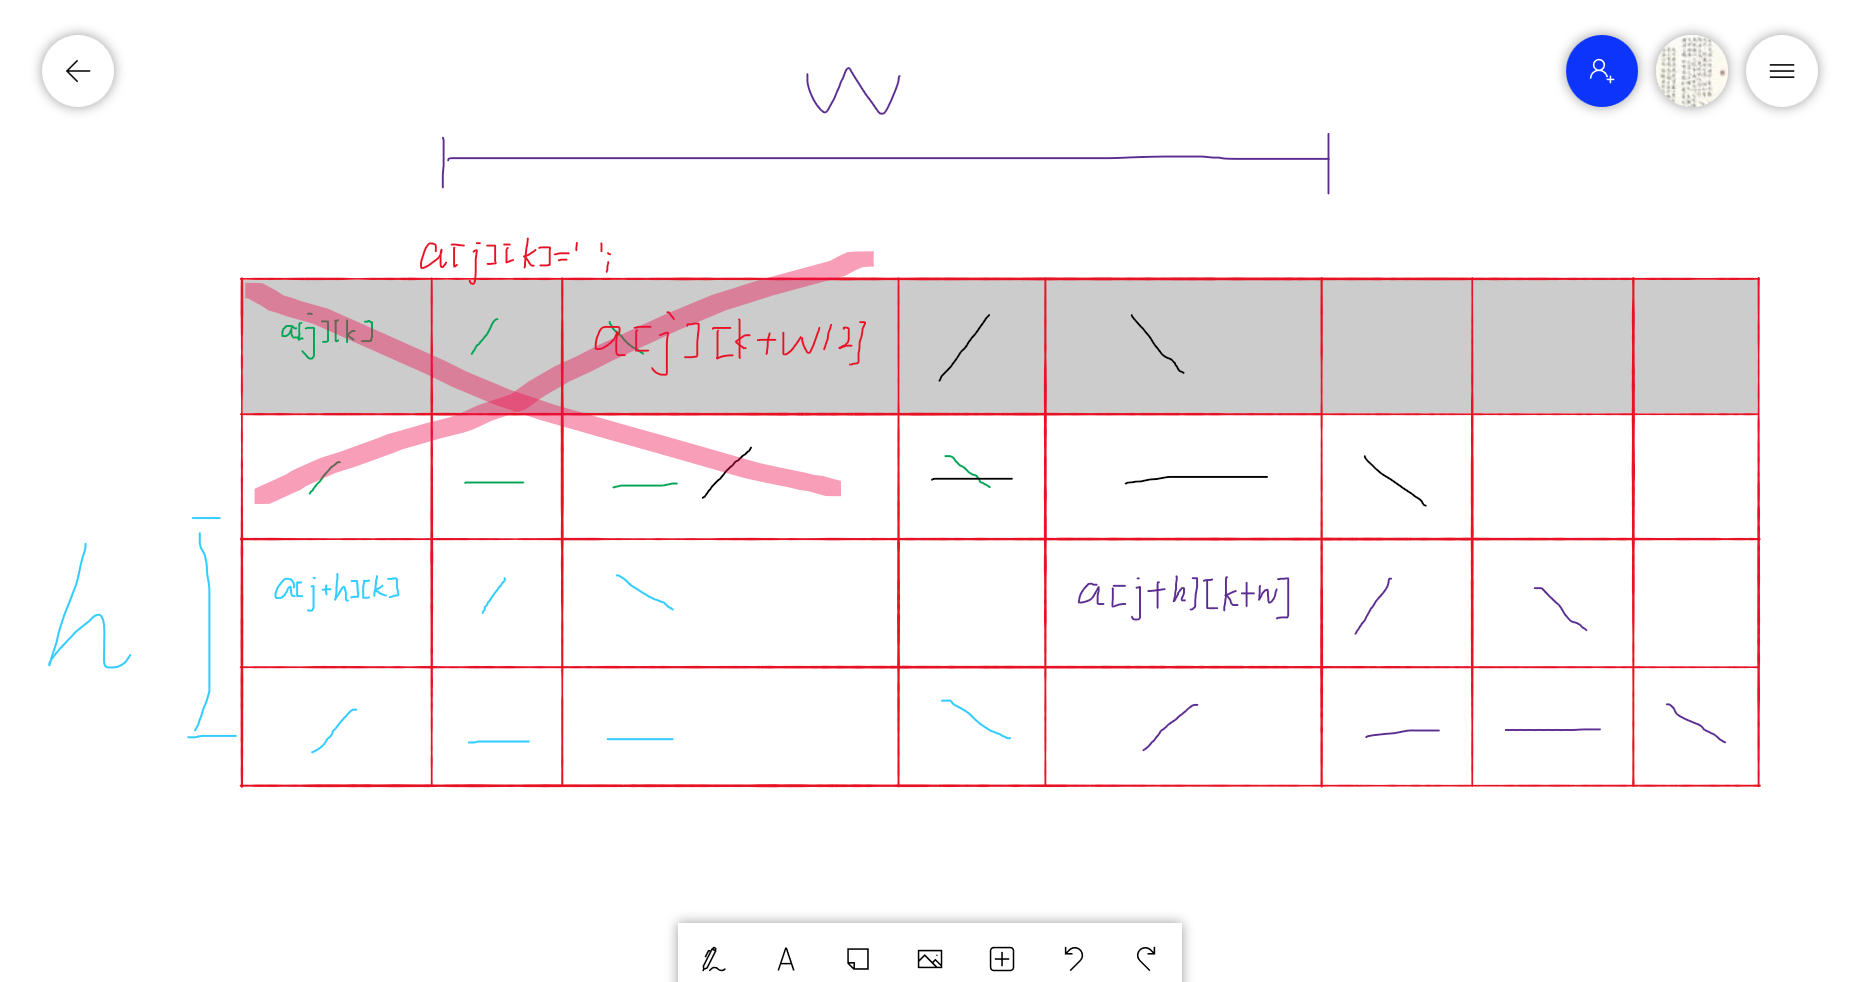 W
a[j][k]=' ';
a[j][k] / \ a[j][k+W/2] / \
/ — — / \ — — \
h
a[j+h][k] / \ a[j+h][k+w] / \
/ — — \ / — — \
A